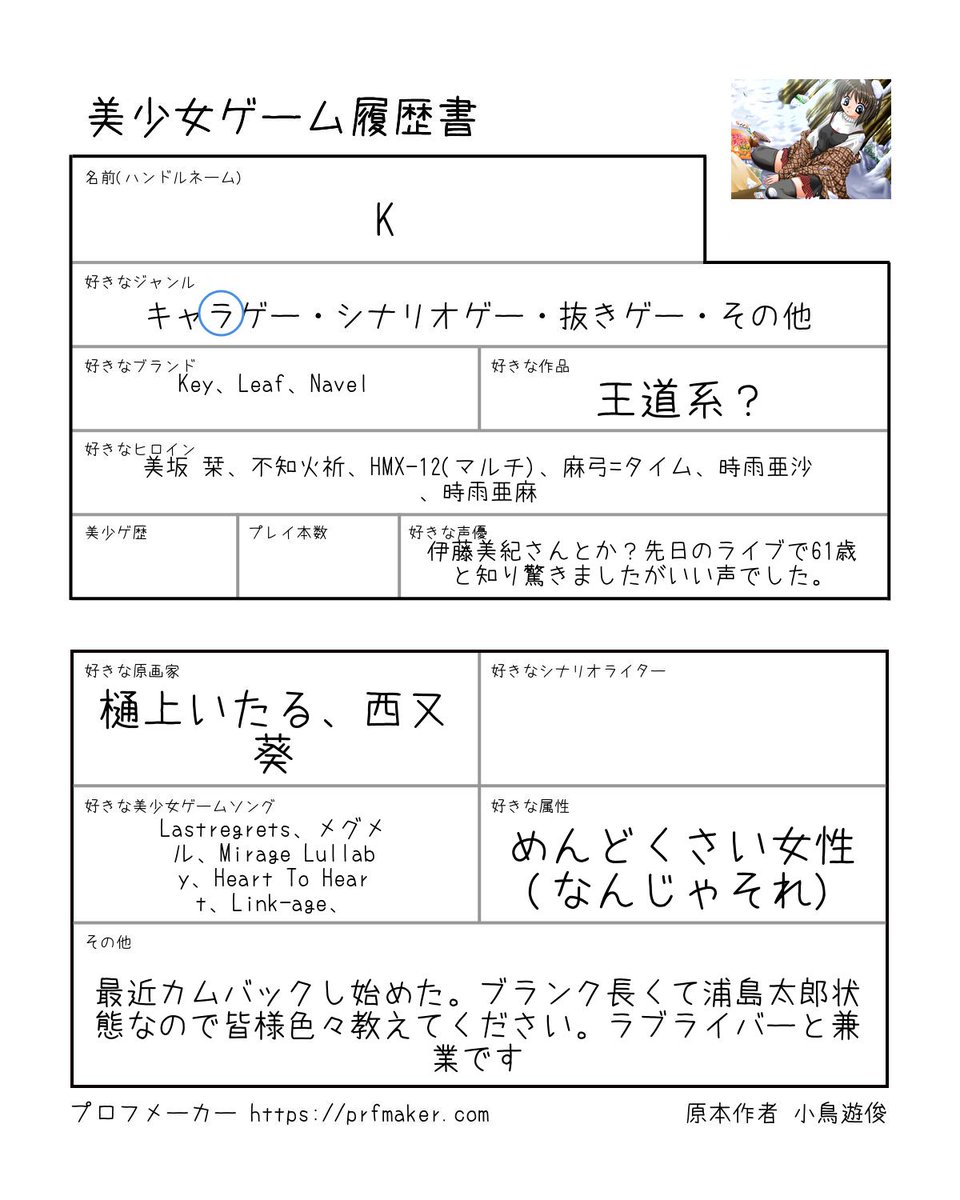 美少女ゲーム履歴書
名前(ハンドルネーム)
K
好きなジャンル
キャラゲー・シナリオゲー・抜きゲー・その他
好きなブランド
Key、Leaf、Navel
好きな作品
王道系？
好きなヒロイン
美坂 栞、不知火祈、HMX-12(マルチ)、麻弓=タイム、時雨亜沙
、時雨亜麻
美少ゲ歴
プレイ本数
好きな声優
伊藤美紀さんとか？先日のライブで61歳
と知り驚きましたがいい声でした。
好きな原画家
樋上いたる、西又
葵
好きなシナリオライター
好きな美少女ゲームソング
Lastregrets、メグメ
ル、Mirage Lullab
y、Heart To Hear
t、Link-age、
好きな属性
めんどくさい女性
(なんじゃそれ)
その他
最近カムバックし始めた。ブランク長くて浦島太郎状
態なので皆様色々教えてください。ラブライバーと兼
業です
プロフメーカー https://prfmaker.com
原本作者 小鳥遊俊